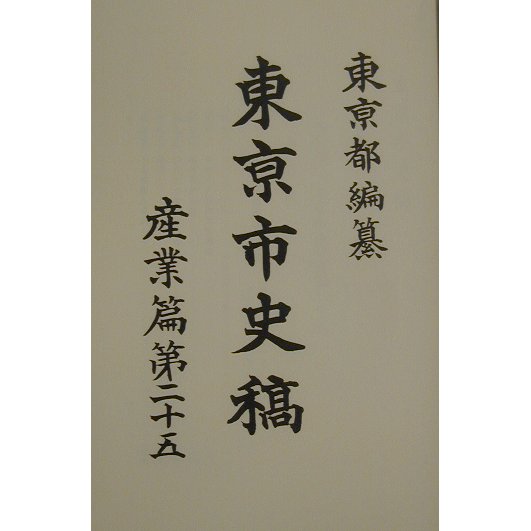 東京都編纂
東京市史稿
産業篇第二十五